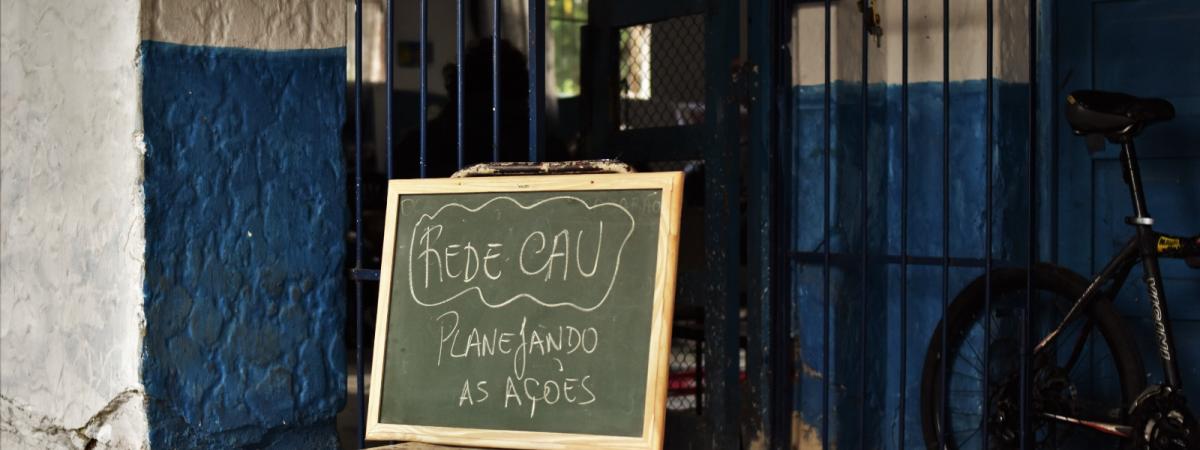 REDE CAU
PLANEJANDO
AS AÇOES